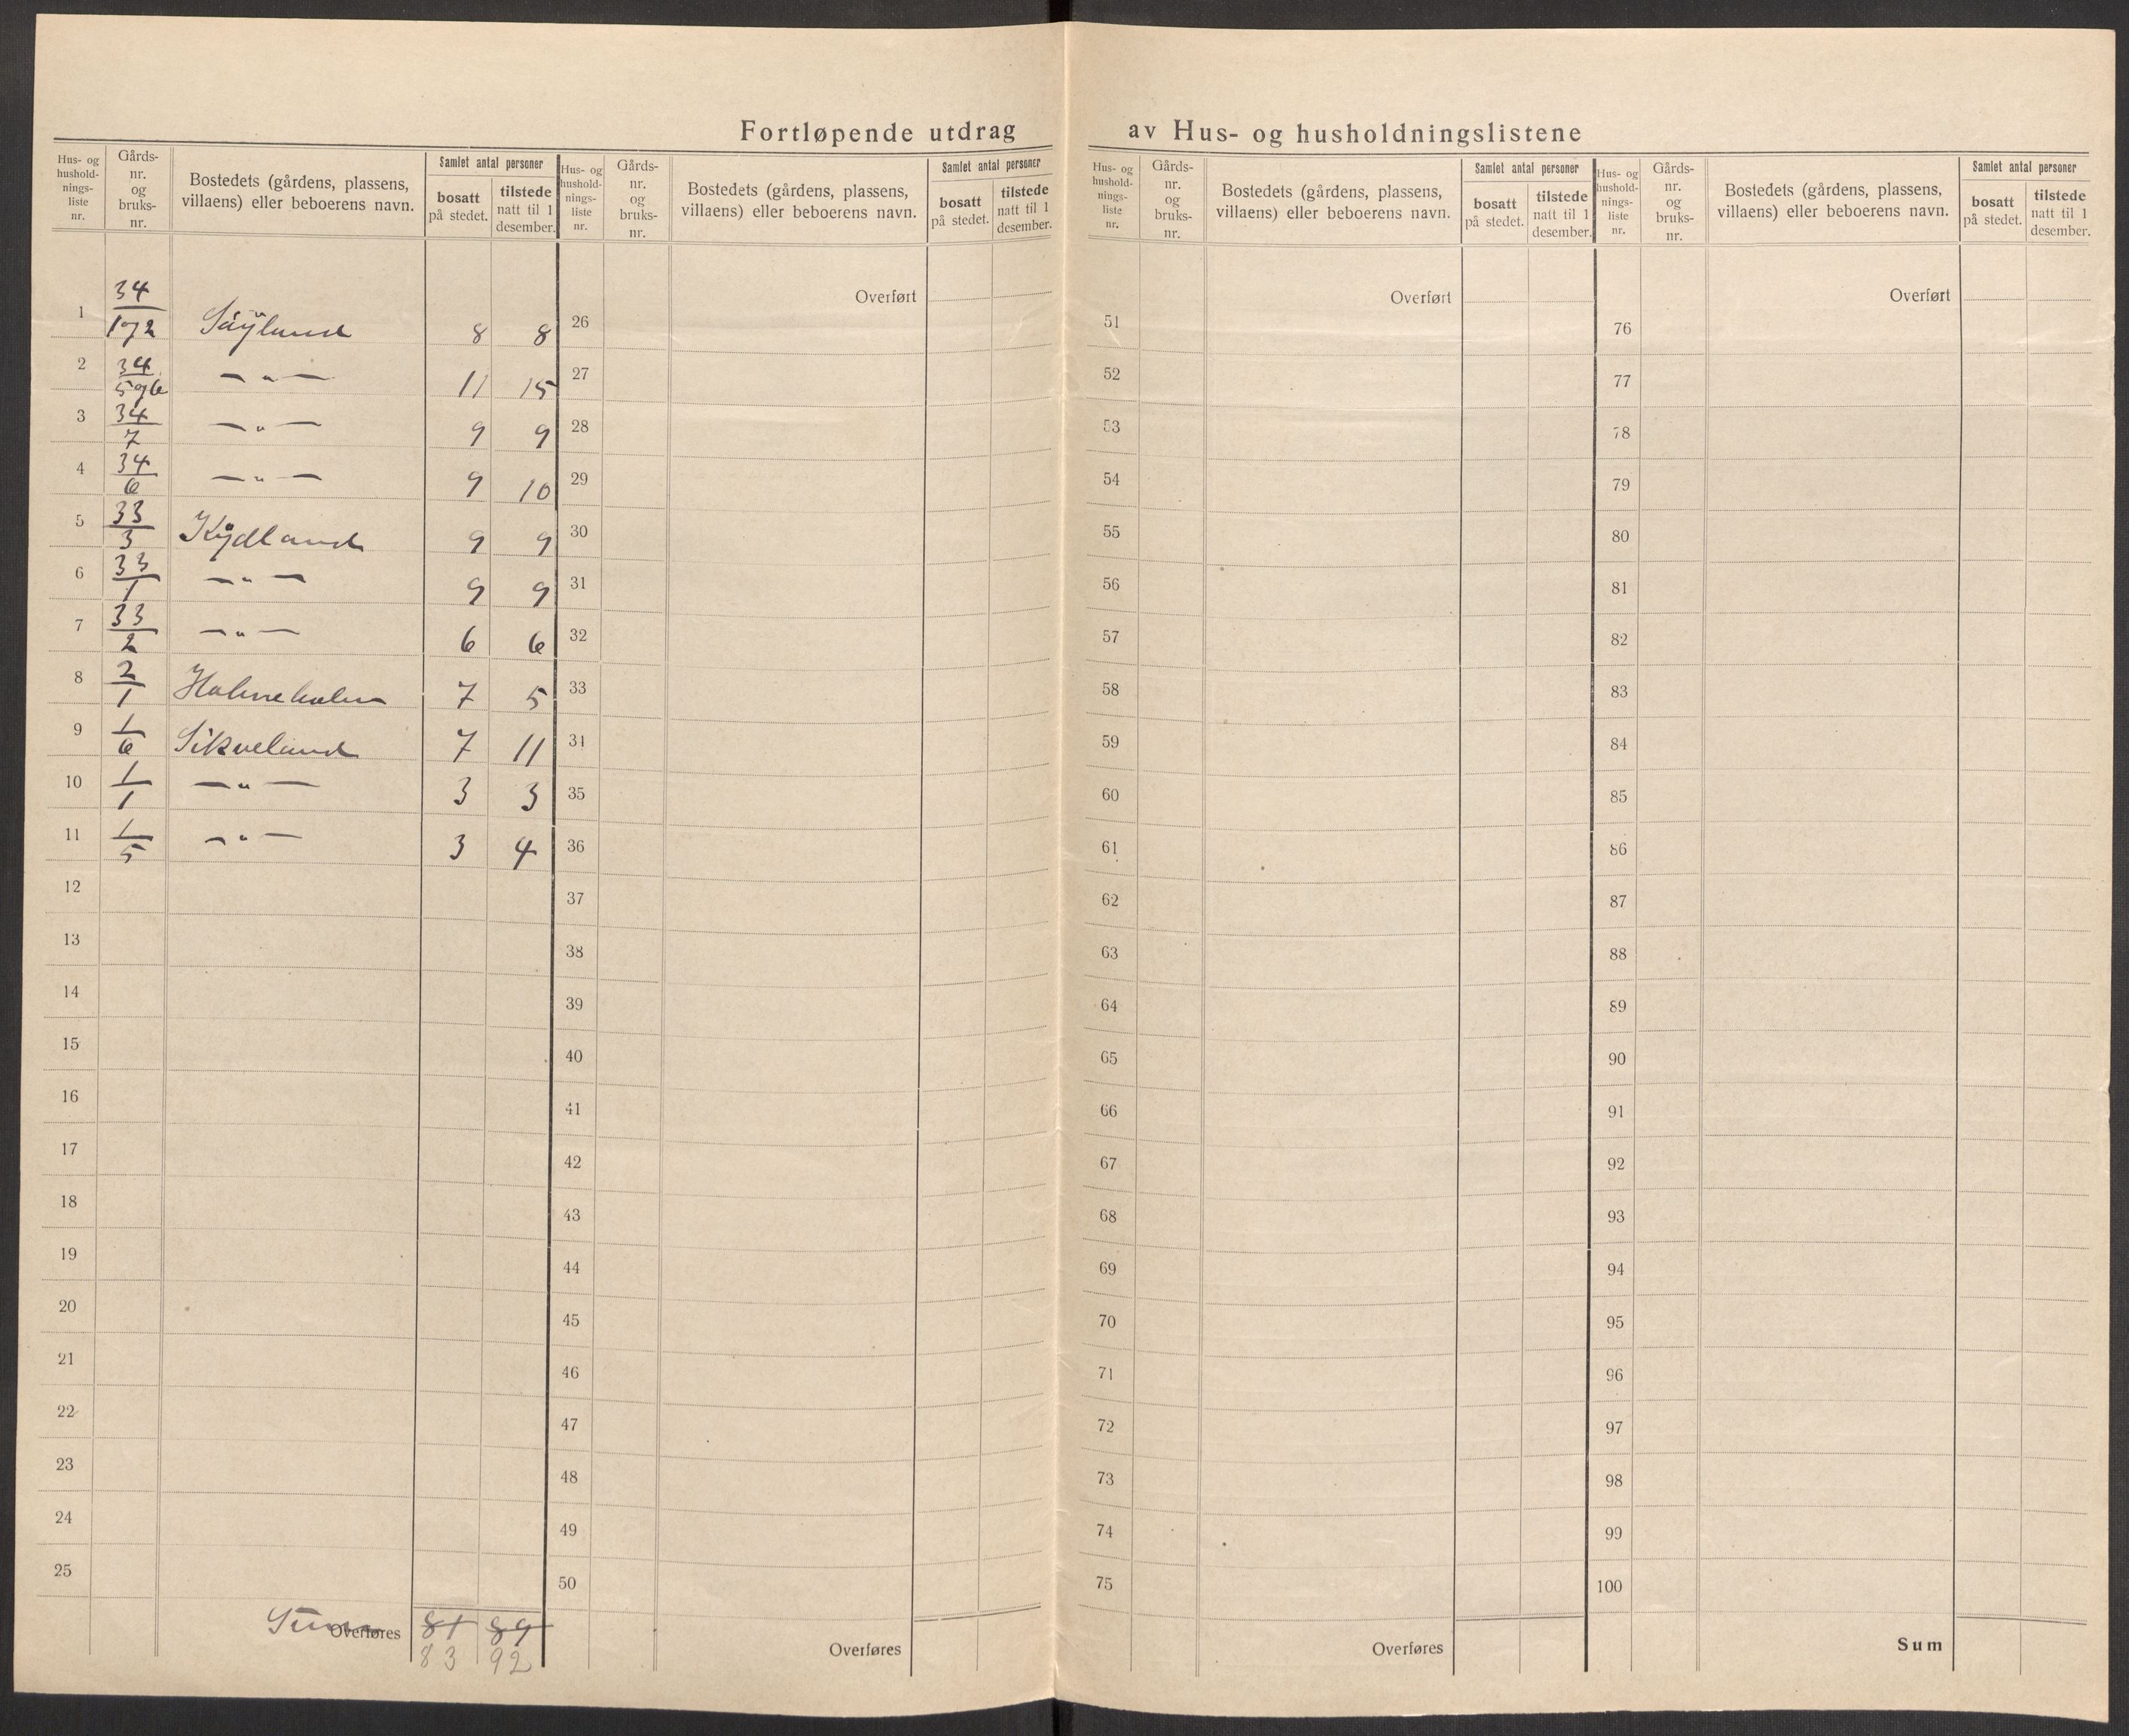 Fortløpende utdrag av Hus- og husholdningslistene
Hus- og hushold-nings-liste nr. | Gårds-nr. og bruks-nr. | Bostedets (gårdens, plassens, villaens) eller beboerens navn. | Samlet antal personer | bosatt på stedet. | tilstede natt til 1 desember.
Hus- og hushold-nings-liste nr. | Gårds-nr. og bruks-nr. | Bostedets (gårdens, plassens, villaens) eller beboerens navn. | Samlet antal personer | bosatt på stedet. | tilstede natt til 1 desember.
Hus- og hushold-nings-liste nr. | Gårds-nr. og bruks-nr. | Bostedets (gårdens, plassens, villaens) eller beboerens navn. | Samlet antal personer | bosatt på stedet. | tilstede natt til 1 desember.
Hus- og hushold-nings-liste nr. | Gårds-nr. og bruks-nr. | Bostedets (gårdens, plassens, villaens) eller beboerens navn. | Samlet antal personer | bosatt på stedet. | tilstede natt til 1 desember.
1 34/1og2 8 8
2 34/5og6 — " — 11 15
3 34/7 — " — 9 9
4 34/6 — " — 9 10
5 33/3 Kydland 9 9
6 33/1 — " — 9 9
7 33/2 — " — 6 6
8 2/1 7 5
9 1/6 Sikveland 7 11
10 1/1 — " — 3 3
11 1/5 — " — 3 4
12
13
14
15
16
17
18
19
20
21
22
23
24
25
Sum Overføres 81 89
83 92
Overført
26
27
28
29
30
31
32
33
34
35
36
37
38
39
40
41
42
43
44
45
46
47
48
49
50
Overføres
Overført
51
52
53
54
55
56
57
58
59
60
61
62
63
64
65
66
67
68
69
70
71
72
73
74
75
Overføres
Overført
76
77
78
79
80
81
82
83
84
85
86
87
88
89
90
91
92
93
94
95
96
97
98
99
100
Sum